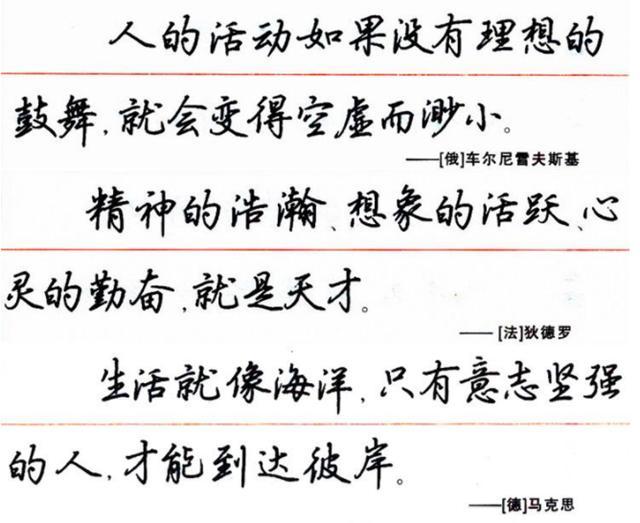 人的活动如果没有理想的
鼓舞,就会变得空虚而渺小。
——[俄]车尔尼雪夫斯基
精神的浩瀚、想象的活跃、心
灵的勤奋,就是天才。
——[法]狄德罗
生活就像海洋,只有意志坚强
的人,才能到达彼岸。
——[德]马克思